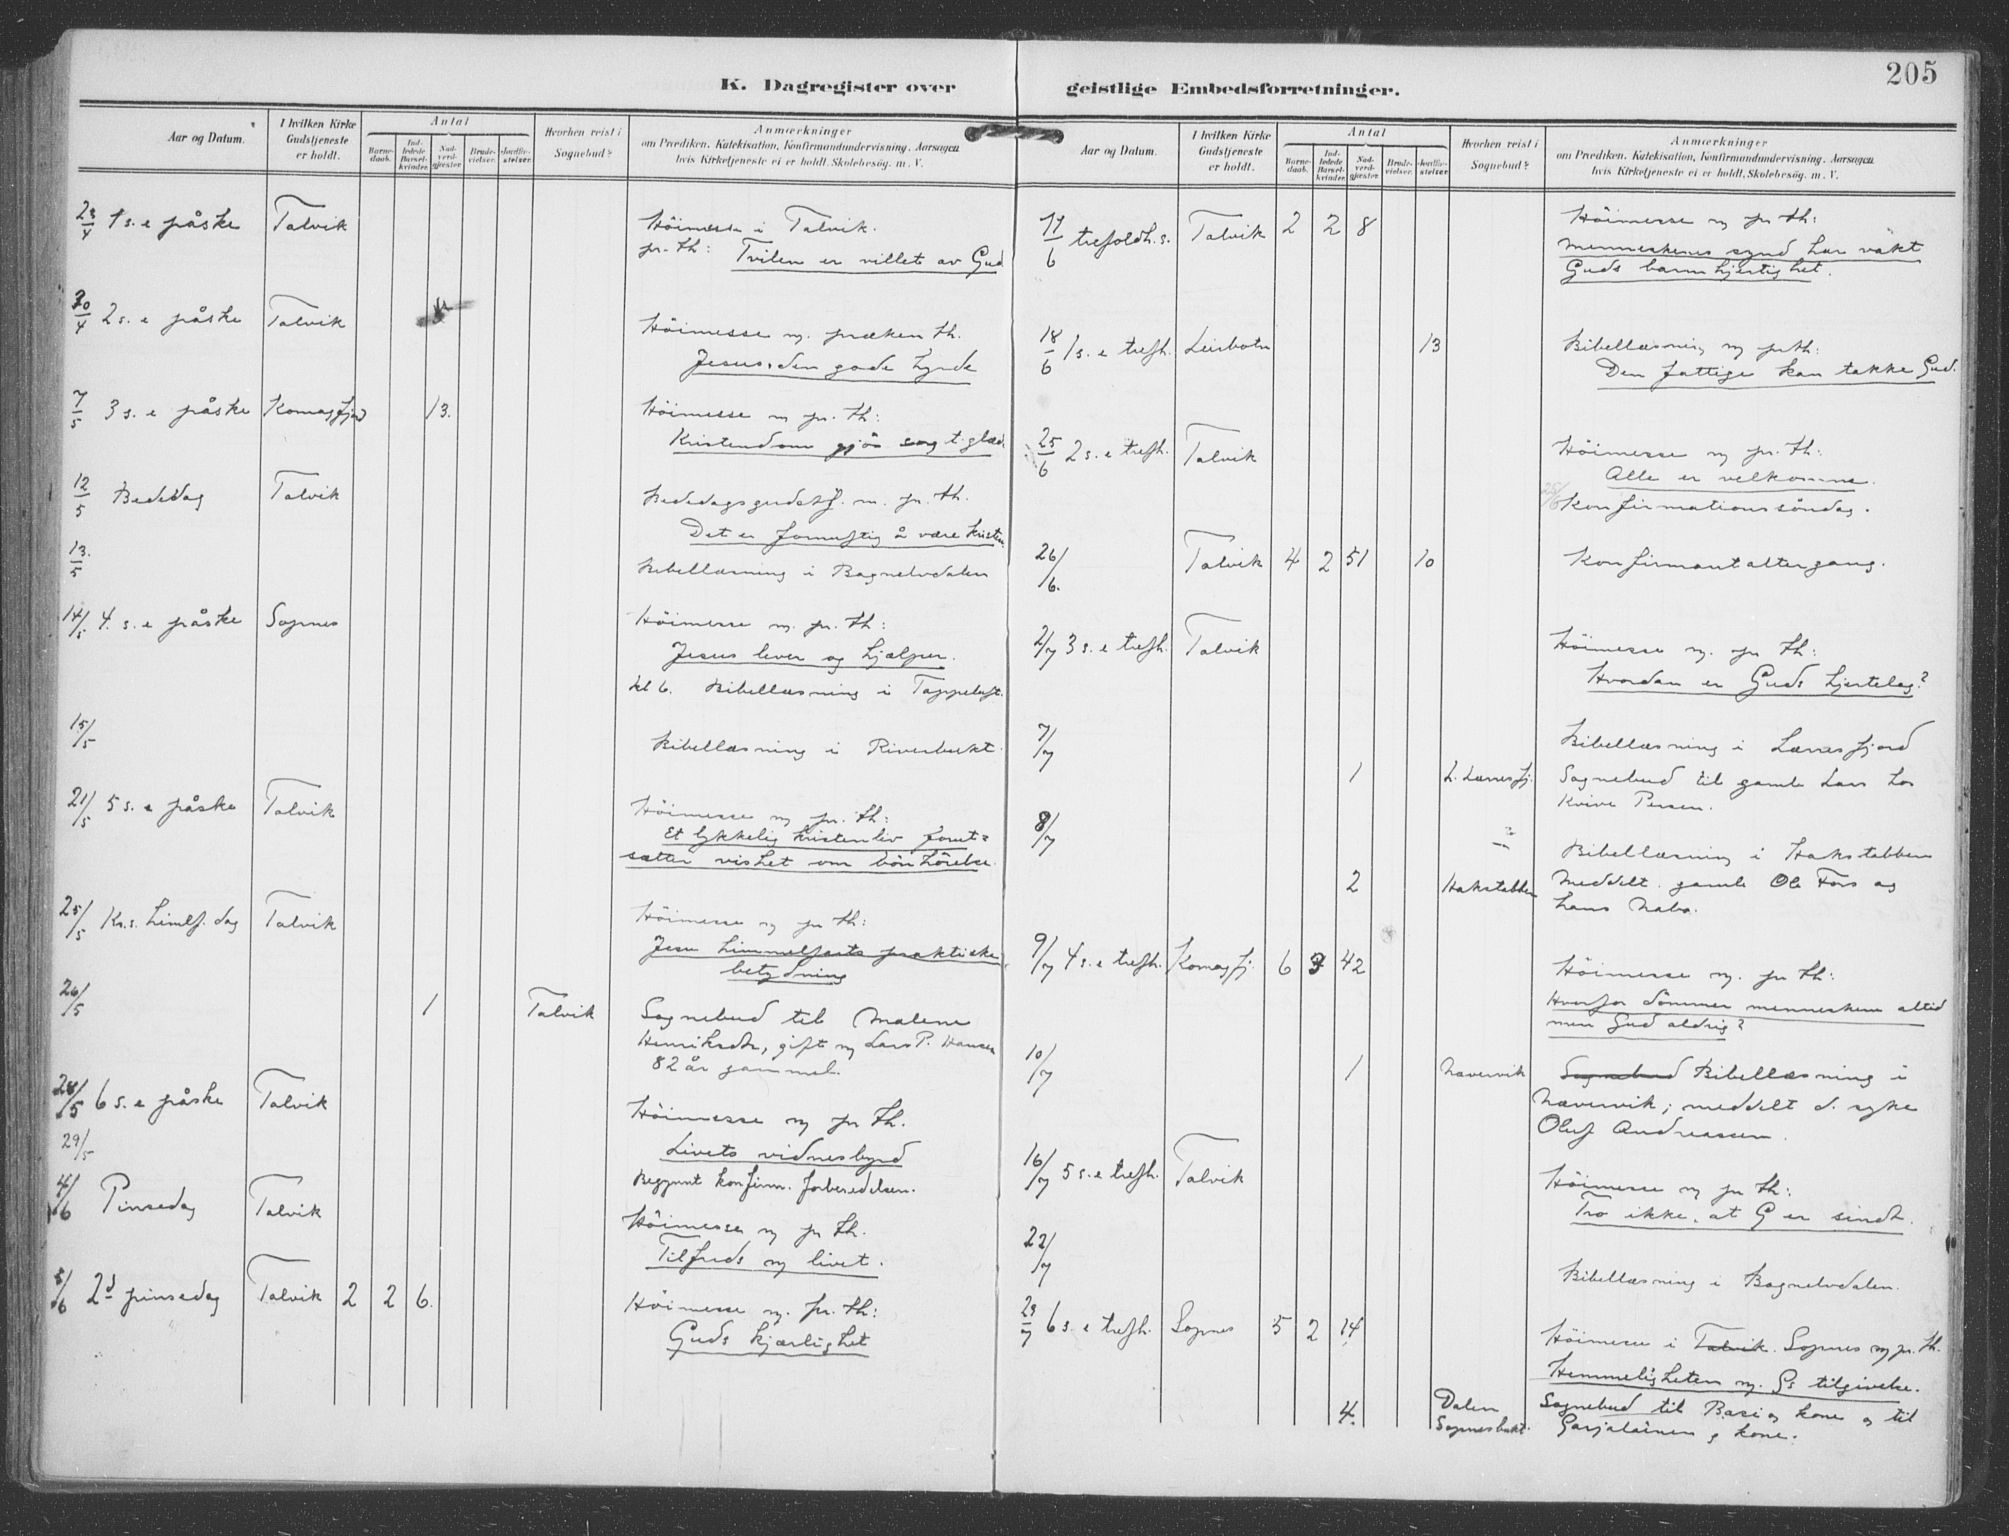 205
K. Dagregister over geistlige Embedsforretninger.
Aar og Datum.
I hvilken Kirke Gudstjeneste er holdt.
Antal
Barnedaab.
Indledede Barselkvinder.
Nadverdgjæster.
Brudevielser.
Jordfæstelser.
Hvorhen reist i Sognebud?
Anmærkninger
om Prædiken, Katekisation, Konfirmandundervisning, Aarsagen
hvis Kirketjeneste ei er holdt, Skolebesøg. m. V.
23/4 1 s. e påske Talvik Höimesse i Talvik.
pr. th: Tvilen er villet av Gud
30/4 2 s. e påske Talvik Höimesse m. præken th.
Jesus, den gode hyrde
7/5 3 s. e påske Komagfjord 13. Höimesse m pr. th:
Kristendom
12/5 Bededag Talvik Bededagsgudstj. m. pr. th.
Det er fornuftig å være kristen
13/5 Bibellæsning i Bognelvdalen
14/5 4. s. e påske Sopnes Höimesse m. pr. th:
Jesus lever og hjælper.
kl 6. Bibellæsning i Tappeluft.
15/5 Bibellæsning i Riverbukt.
21/5 5 s. e påske Talvik Höimesse m pr. th:
Et lykkelig kristenliv forut=
sætter vishet om bönhörelse.
25/5 Kr. s. himlf. dag Talvik Höimesse m pr th:
Jesu himmelfarts praktiske
betydning
26/5 1 Talvik Sognebud til Malene
Henriksdtr, gift m Lars P. Hansen
82 år gammel.
28/5 6 s. e påske Talvik Höimesse m pr th.
Livets vidnesbyrd
29/5 Begynnt konfirm. forberedelsen.
4/6 Pinsedag Talvik Höimesse m pr th.
Tilfreds m livet.
5/6 2d pinsedag Talvik 2 2 6. Höimesse m. pr. th:
Guds kjærlighet
Aar og Datum.
I hvilken Kirke Gudstjeneste er holdt.
Antal
Barnedaab.
Indledede Barselkvinder.
Nadverdgjæster.
Brudevielser.
Jordfæstelser.
Hvorhen reist i Sognebud?
Anmærkninger
om Prædiken, Katekisation, Konfirmandundervisning, Aarsagen
hvis Kirketjeneste ei er holdt, Skolebesøg. m. V.
11/6 trefoldh. s. Talvik 2 2 8 Höimesse m pr th:
Menneskenes synd har vakt
Guds barmhjertighet.
18/6 1 s. e trefh. Leirbotn 13 Bibellæsning m pr th:
Den fattige kan takke Gud.
25/6 2 s. e trefh. Talvik Höimesse m pr. th:
Alle er velkomne.
25/6 Konfirmationssöndag.
26/6. Talvik 4 2 51 10 Konfirmantaltergang.
2/7 3 s. e trefh. Talvik Höimesse m. pr th:
Hvordan er Guds hjertelag?
7/7 Bibellæsning i Lærresfjord
1 L. Lærresfj. Sognebud til gamle Lars
Persen.
8/7 Bibellæsning i Hakstabben
2 Hakstabben Meddelt gamle og
9/7 4 s. e trefh. Komagfj. 6 3 42 Höimesse m. pr th:
Hvorfor dömmer menneskene altid
men Gud aldrig?
10/7 1 Nævervik Sognebud Bibellæsning i
Nævervik; meddelt d. syke
Oluf Andreassen.
16/7 5 s. e trefh. Talvik Höimesse m pr th:
Tro ikke, at G er sindt.
22/7 Bibellæsning i Bognelvdalen.
23/7 6 s. e trefh. Sopnes 5 2 14 Höimesse i Talvik. Sopnes m pr. th.
Hemmeligheten m. Gs tilgivelse.
4. Dalen Sognebud til kone og til
Sopnesbukt. kone.